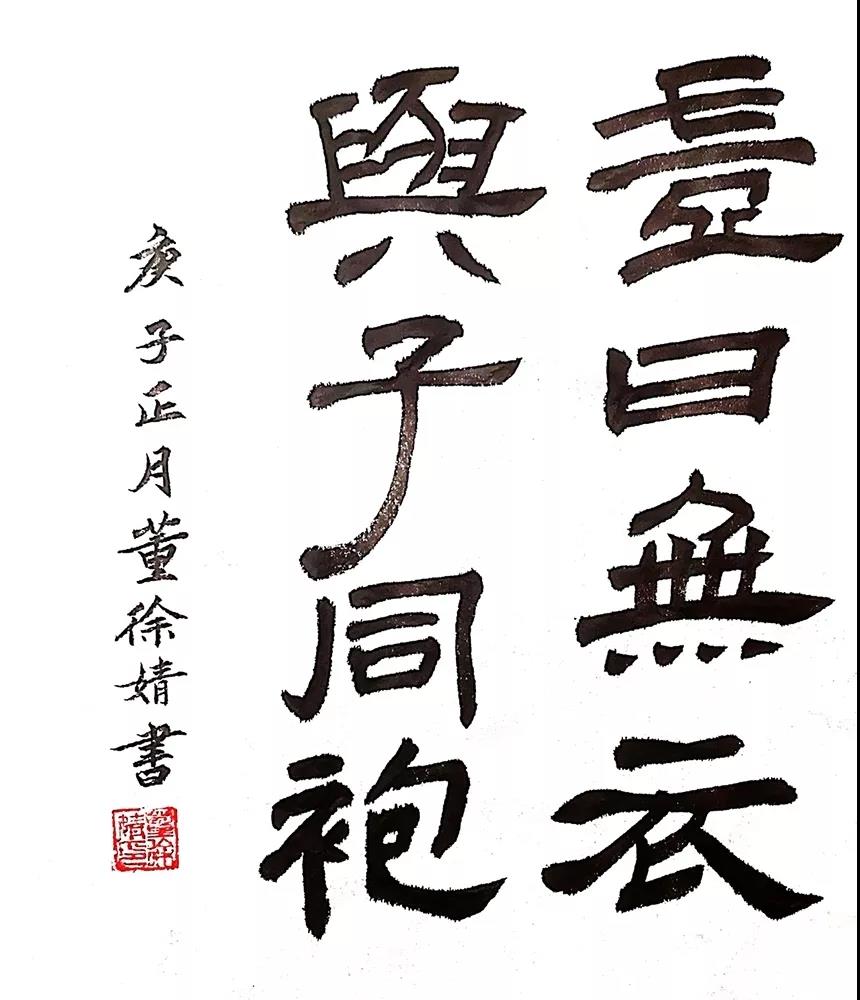 豈曰無衣
與子同袍
庚子正月董徐婧書
董徐
婧印